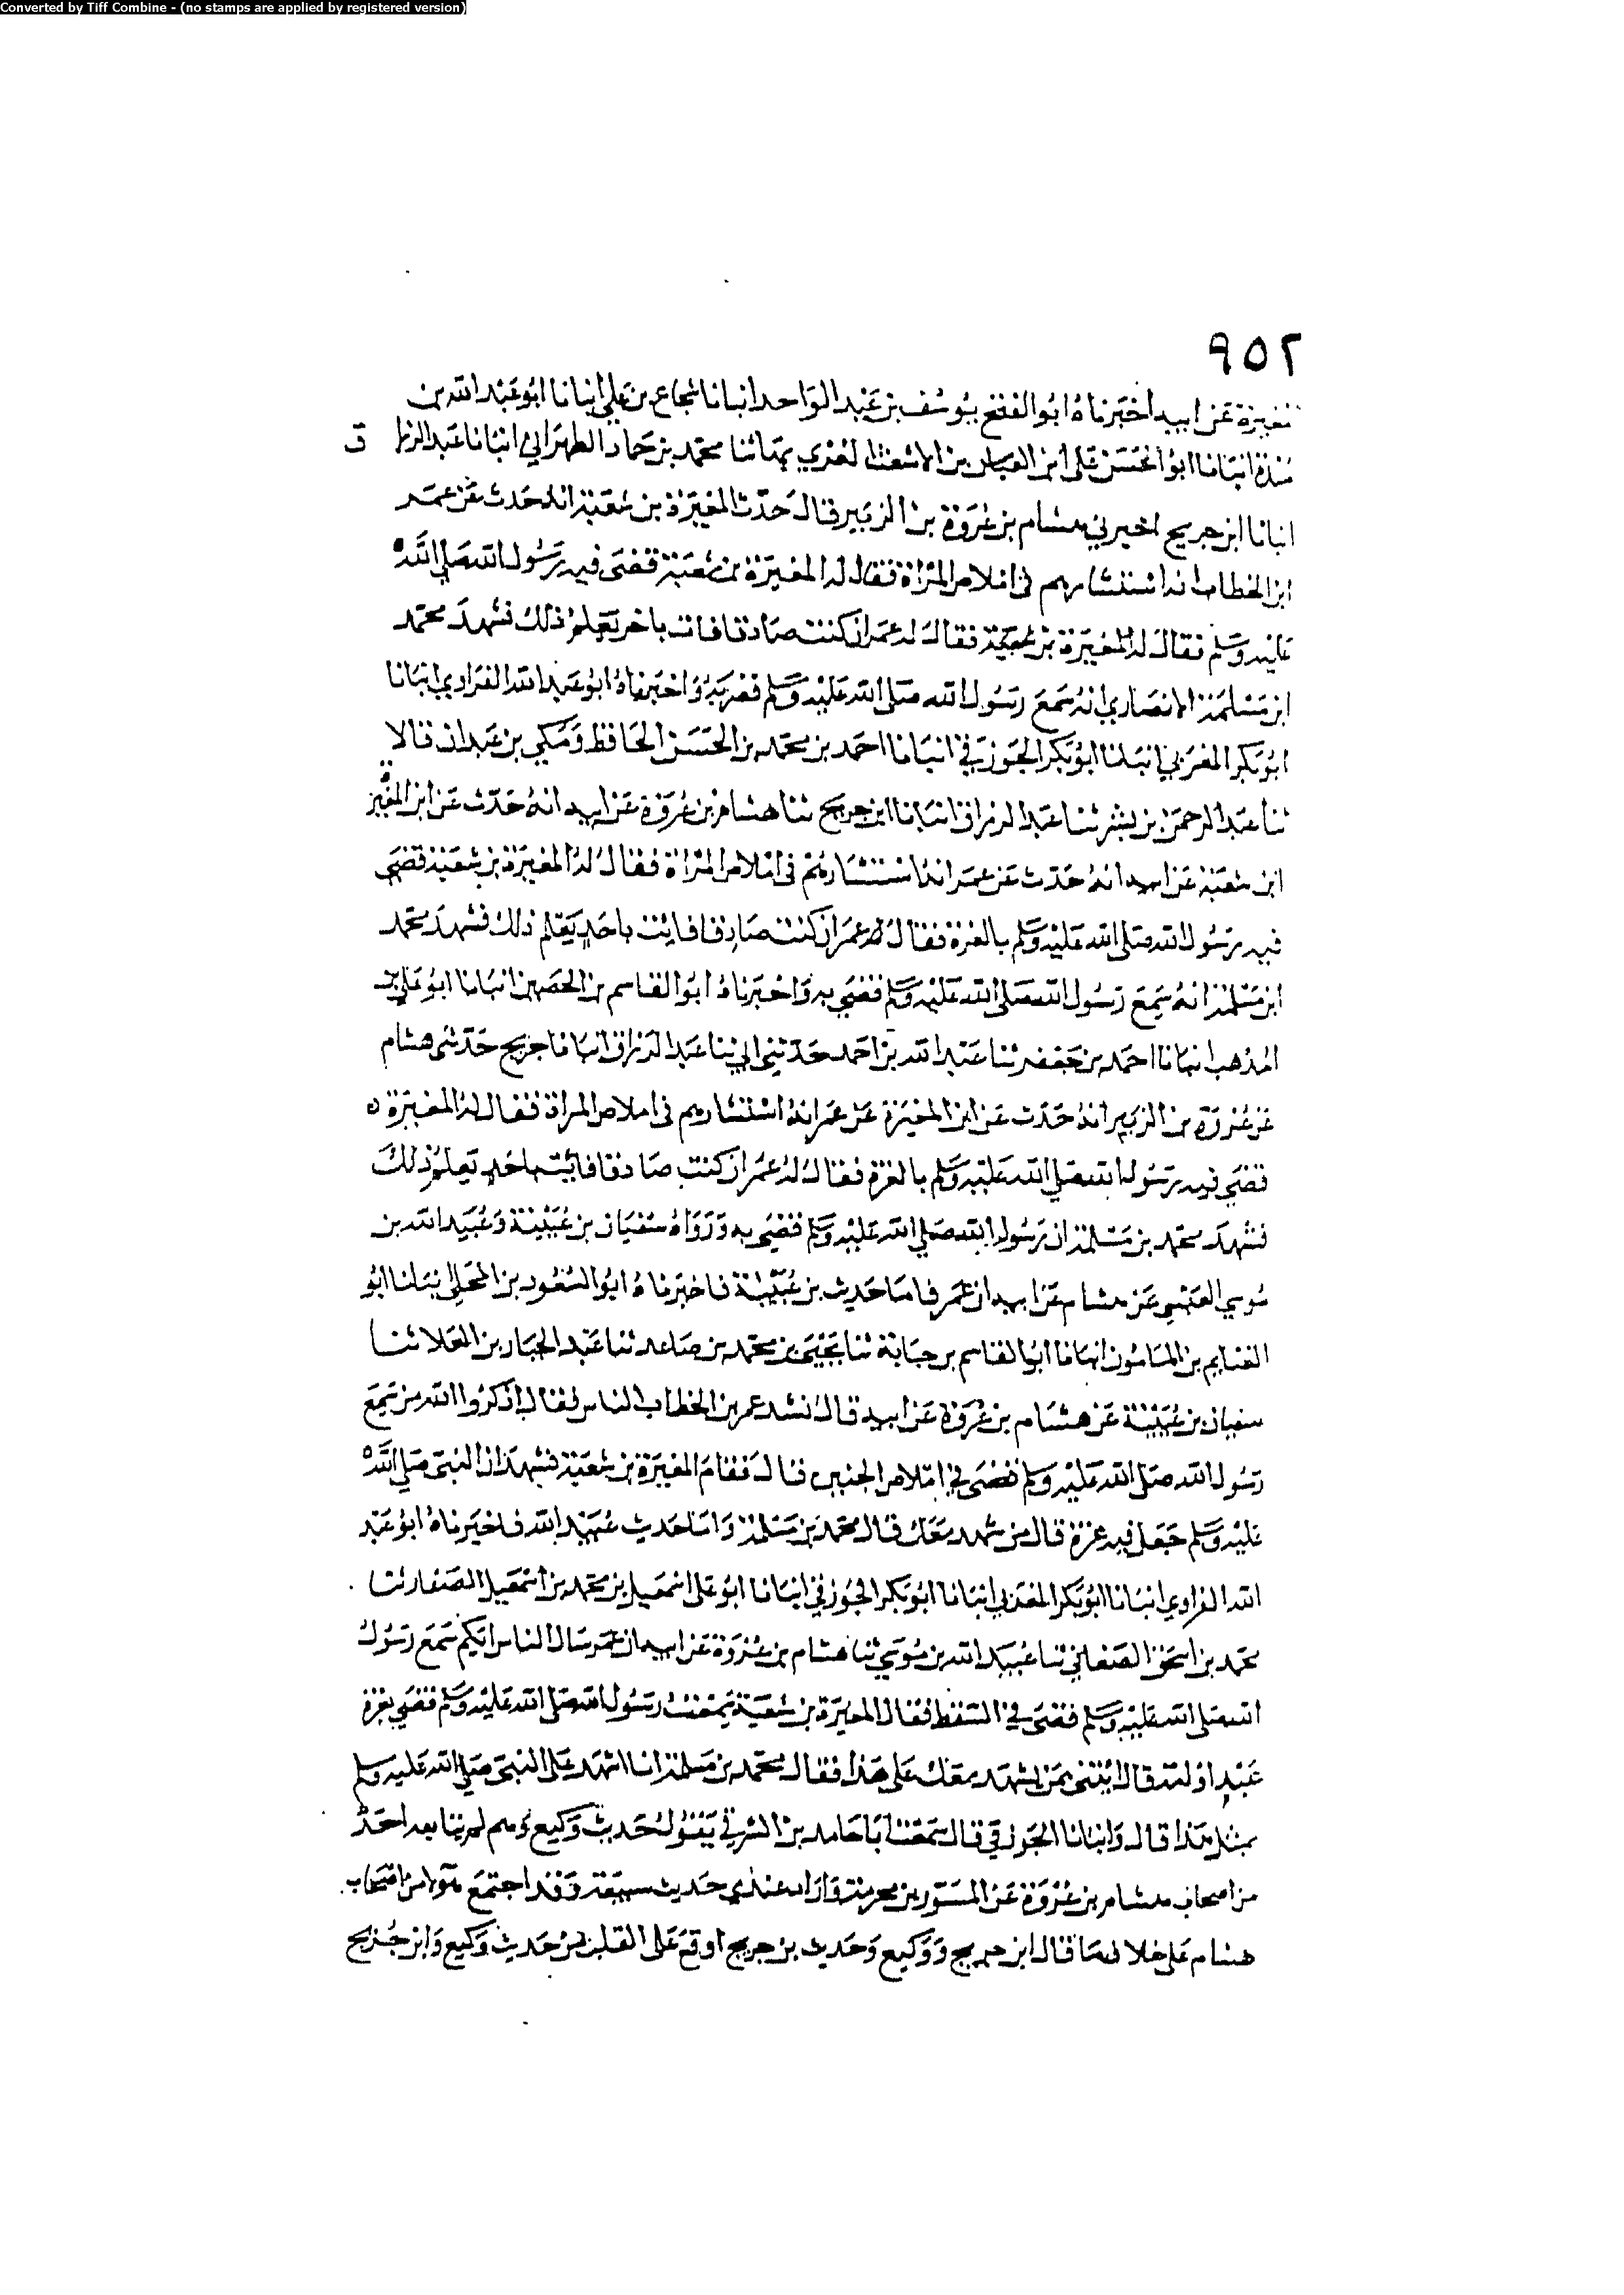 Converted by Tiff Combine - (no stamps are applied by registered version)
٩٥٢
مغيرة عن ابيه اخبرناه ابو الفتح يوسف بن عبد الواحد انبانا شجاع بن علي انبانا ابو عبد الله بن
مندة انبانا ابو الحسن علي ابن العباس بن الاشعث الغزي بها ثنا محمد بن حماد الطهراني انبانا عبد الرزا ق
انبانا ابن جريح اخبرني هشام بن عروة بن الزبير قال حدث المغيرة بن شعبة انه حدث عن عمر
ابن الخطاب انه استشارهم في املاص المراة فقال له المغيرة بن شعبة قضى فيه رسول الله صلى الله
عليه وسلم فقال له المغيرة بن شعبة فقال له عمر ان كنت صادقا فات باخر يعلم ذلك فشهد محمد
ابن مسلمة الانصاري انه سمع رسول الله صلى الله عليه وسلم واخبرناه ابو عبد الله الفراوي انبانا
ابو بكر المغربي انبانا ابو بكر الجوزقي انبانا احمد بن محمد بن الحسن الحافظ ومكي بن عبدان قالا
ثنا عبد الرحمن بن بشر ثنا عبد الرزاق انبانا ابن جريح ثنا هشام بن عروة عن ابيه انه حدث عن ابن المغير
ابن شعبة عن ابيه انه حدث عن عمر انه استشارهم في املاص المراة فقال له المغيرة بن شعبة قضى
فيه رسول الله صلى الله عليه وسلم بالغرة فقال له عمر ان كنت صادقا فائت باحد يعلم ذلك فشهد محمد
ابن مسلمة انه سمع رسول الله صلى الله عليه وسلم قضى به واخبرناه ابو القاسم بن الحصين انبانا ابو علي بن
المذهب انبانا احمد بن جعفر ثنا عبد الله بن احمد حدثني ابي ثنا عبد الرزاق انبانا جريح حدثني هشام
عن عروة بن الزبير انه حدث عن ابن المغيرة عن عمر انه استشارهم في املاص المراة فقال له المغيرة
قضى فيه رسول الله صلى الله عليه وسلم بالغرة فقال له عمر ان كنت صادقا فائت باحد يعلم ذلك
فشهد محمد بن مسلمة ان رسول الله صلى الله عليه وسلم قضى به ورواه سفيان بن عيينة وعبيد الله بن
موسى العبسي عن هشام عن ابيه ان عمر فاما حديث بن عيينة فاخبرناه ابو السعود بن المجلي انبانا ابو
الغنايم بن المامون انبانا ابو القاسم بن حبابة ثنا يحيى بن محمد بن صاعد ثنا عبد الجبار بن العلا ثنا
سفيان بن عيينة عن هشام بن عروة عن ابيه قال نشد عمر بن الخطاب الناس فقال اذكروا الله من سمع
رسول الله صلى الله عليه وسلم قضى في املاص الجنين قال فقام المغيرة بن شعبة فشهد ان النبي صلى الله
عليه وسلم جعل فيه غرة قال من شهد معك قال محمد بن مسلمة واما حديث عبيد الله فاخبرناه ابو عبد
الله الفراوي انبانا ابو بكر المغربي انبانا ابو بكر الجوزقي انبانا ابو علي اسمعيل بن محمد بن اسمعيل الصفار ثنا
محمد بن اسحق الصغاني ثنا عبيد الله بن موسى ثنا هشام بن عروة عن ابيه ان عمر سال الناس ايكم سمع رسول
الله صلى الله عليه وسلم قضى في السقط فقال المغيرة بن شعبة سمعت رسول الله صلى الله عليه وسلم قضى بغرة
عبد او امة قال ائتني بمن يشهد معك على هذا فقال محمد بن مسلمة انا اشهد على النبي صلى الله عليه وسلم
بمثل هذا قال وانبانا الجوزقي قال سمعت ابا حامد بن الشرقي يقول حديث وكيع وهم لم يتابعه احد
من اصحاب هشام بن عروة عن المسور بن مخرمة عندي حديث وقد اجتمع هؤلاء من اصحاب
هشام على خلاف ما قال ابن جريج ووكيع وحديث بن جريج اوقع على القلب من حديث وكيع وابن جريج